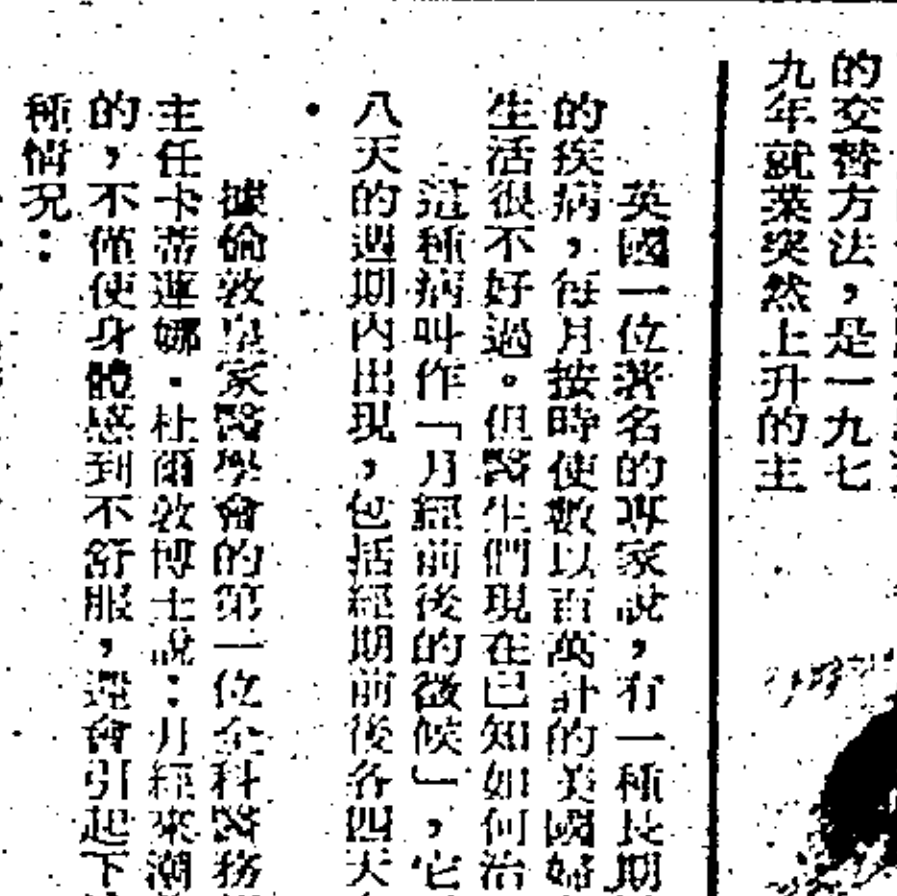 的交替方法，是一九七
九年就業突然上升的主
英國一位著名的專家說，有一種長期
的疾病，每月按時使數以百萬計的美國婦
生活很不好過。但醫生們現在已知如何治
這種病叫作「月經前後的徵候」，它
八天的週期內出現，包括經期前後各四天
據倫敦皇家醫學會的第一位全科醫務
主任卡蒂蓮娜·杜爾敦博士說：月經來潮
的，不僅使身體感到不舒服，還會引起下
種情况：